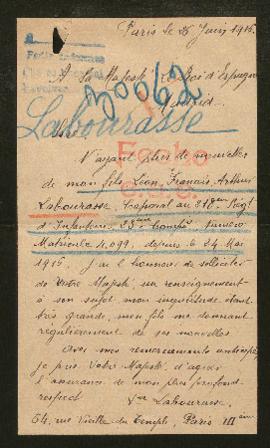 Paris le 25 Juin 1915.
A Sa Majesté le Roi d'Espagne
Madrid
30062
Labourasse
Fecho
N'ayant plus de nouvelles
de mon fils Léon, Français, Arthur
Labourasse Caporal au 31e Régt
d'Infanterie 23ème Compie numéro
Matricule 4,099, depuis le 24 Mai
1915 j'ai l'honneur de solliciter
de Votre Majesté, un renseignement
à son sujet mon inquiétude étant
très grande, mon fils me donnant
régulièrement de ses nouvelles
Avec mes remerciements anticipés
je prie Votre Majesté d'agréer
l'assurance de mon plus profond
respect
Labourasse,
54, rue Vieille du Temple, Paris III ème